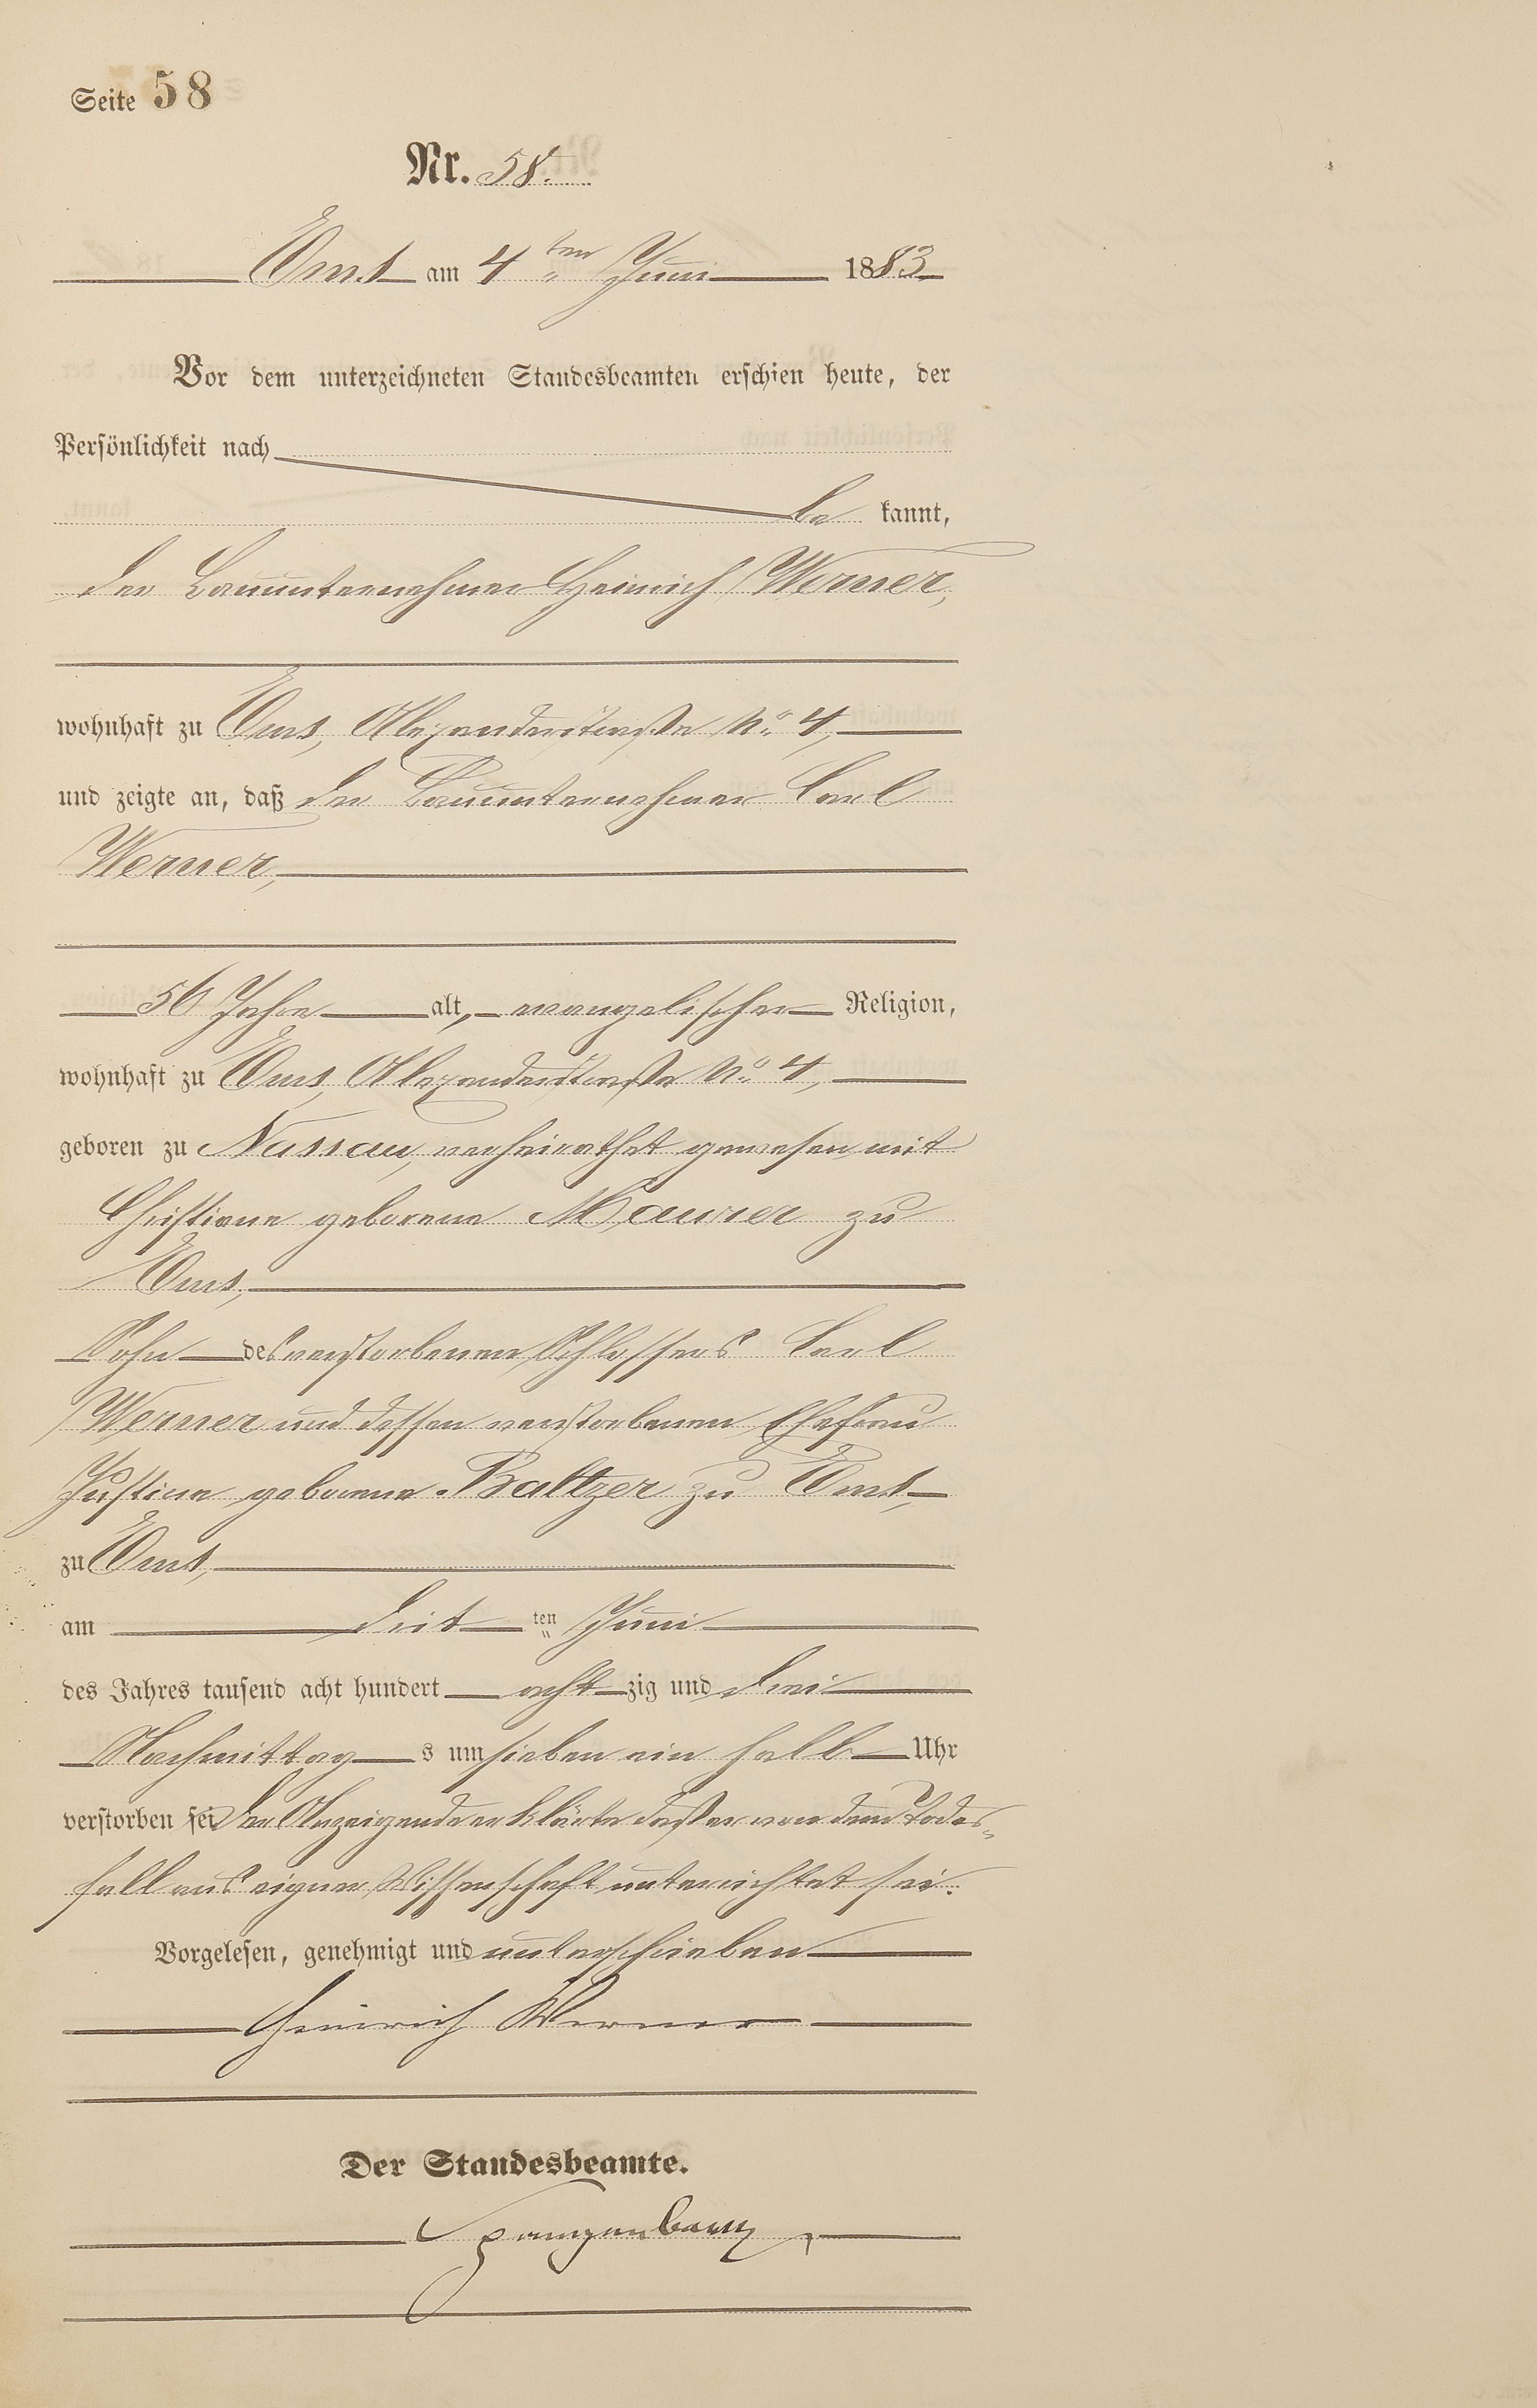 Seite 58
Nr. 58.
Ems am 4ten Juni 1883
Vor dem unterzeichneten Standesbeamten erschien heute, der
Persönlichkeit nach
be kannt,
der Bauunternehmer Heinrich Werner,
wohnhaft zu Ems, Alexanderstraße No. 4,
und zeigte an, daß der Bauunternehmer Carl
Werner,
56 Jahre alt, evangelischer Religion,
wohnhaft zu Ems, Alexanderstraße No. 4,
geboren zu Nassau, verheirathet gewesen mit
Christiane geborene Maurer zu
Ems,
Sohn des verstorbenen Schlossers Carl
Werner und dessen verstorbenen Ehefrau
Justine geborene Baltzer zu Ems,
zu Ems,
am drit ten Juni
des Jahres tausend acht hundert acht zig und drei
Nachmittag s um sieben ein halb Uhr
verstorben sei Der Anzeigende erklärte daß er von dem Todes-
fall aus eigner Wissenschaft unterrichtet sei.
Vorgelesen, genehmigt und unterschrieben
Heinrich Werner
Der Standesbeamte.
Spangenberg